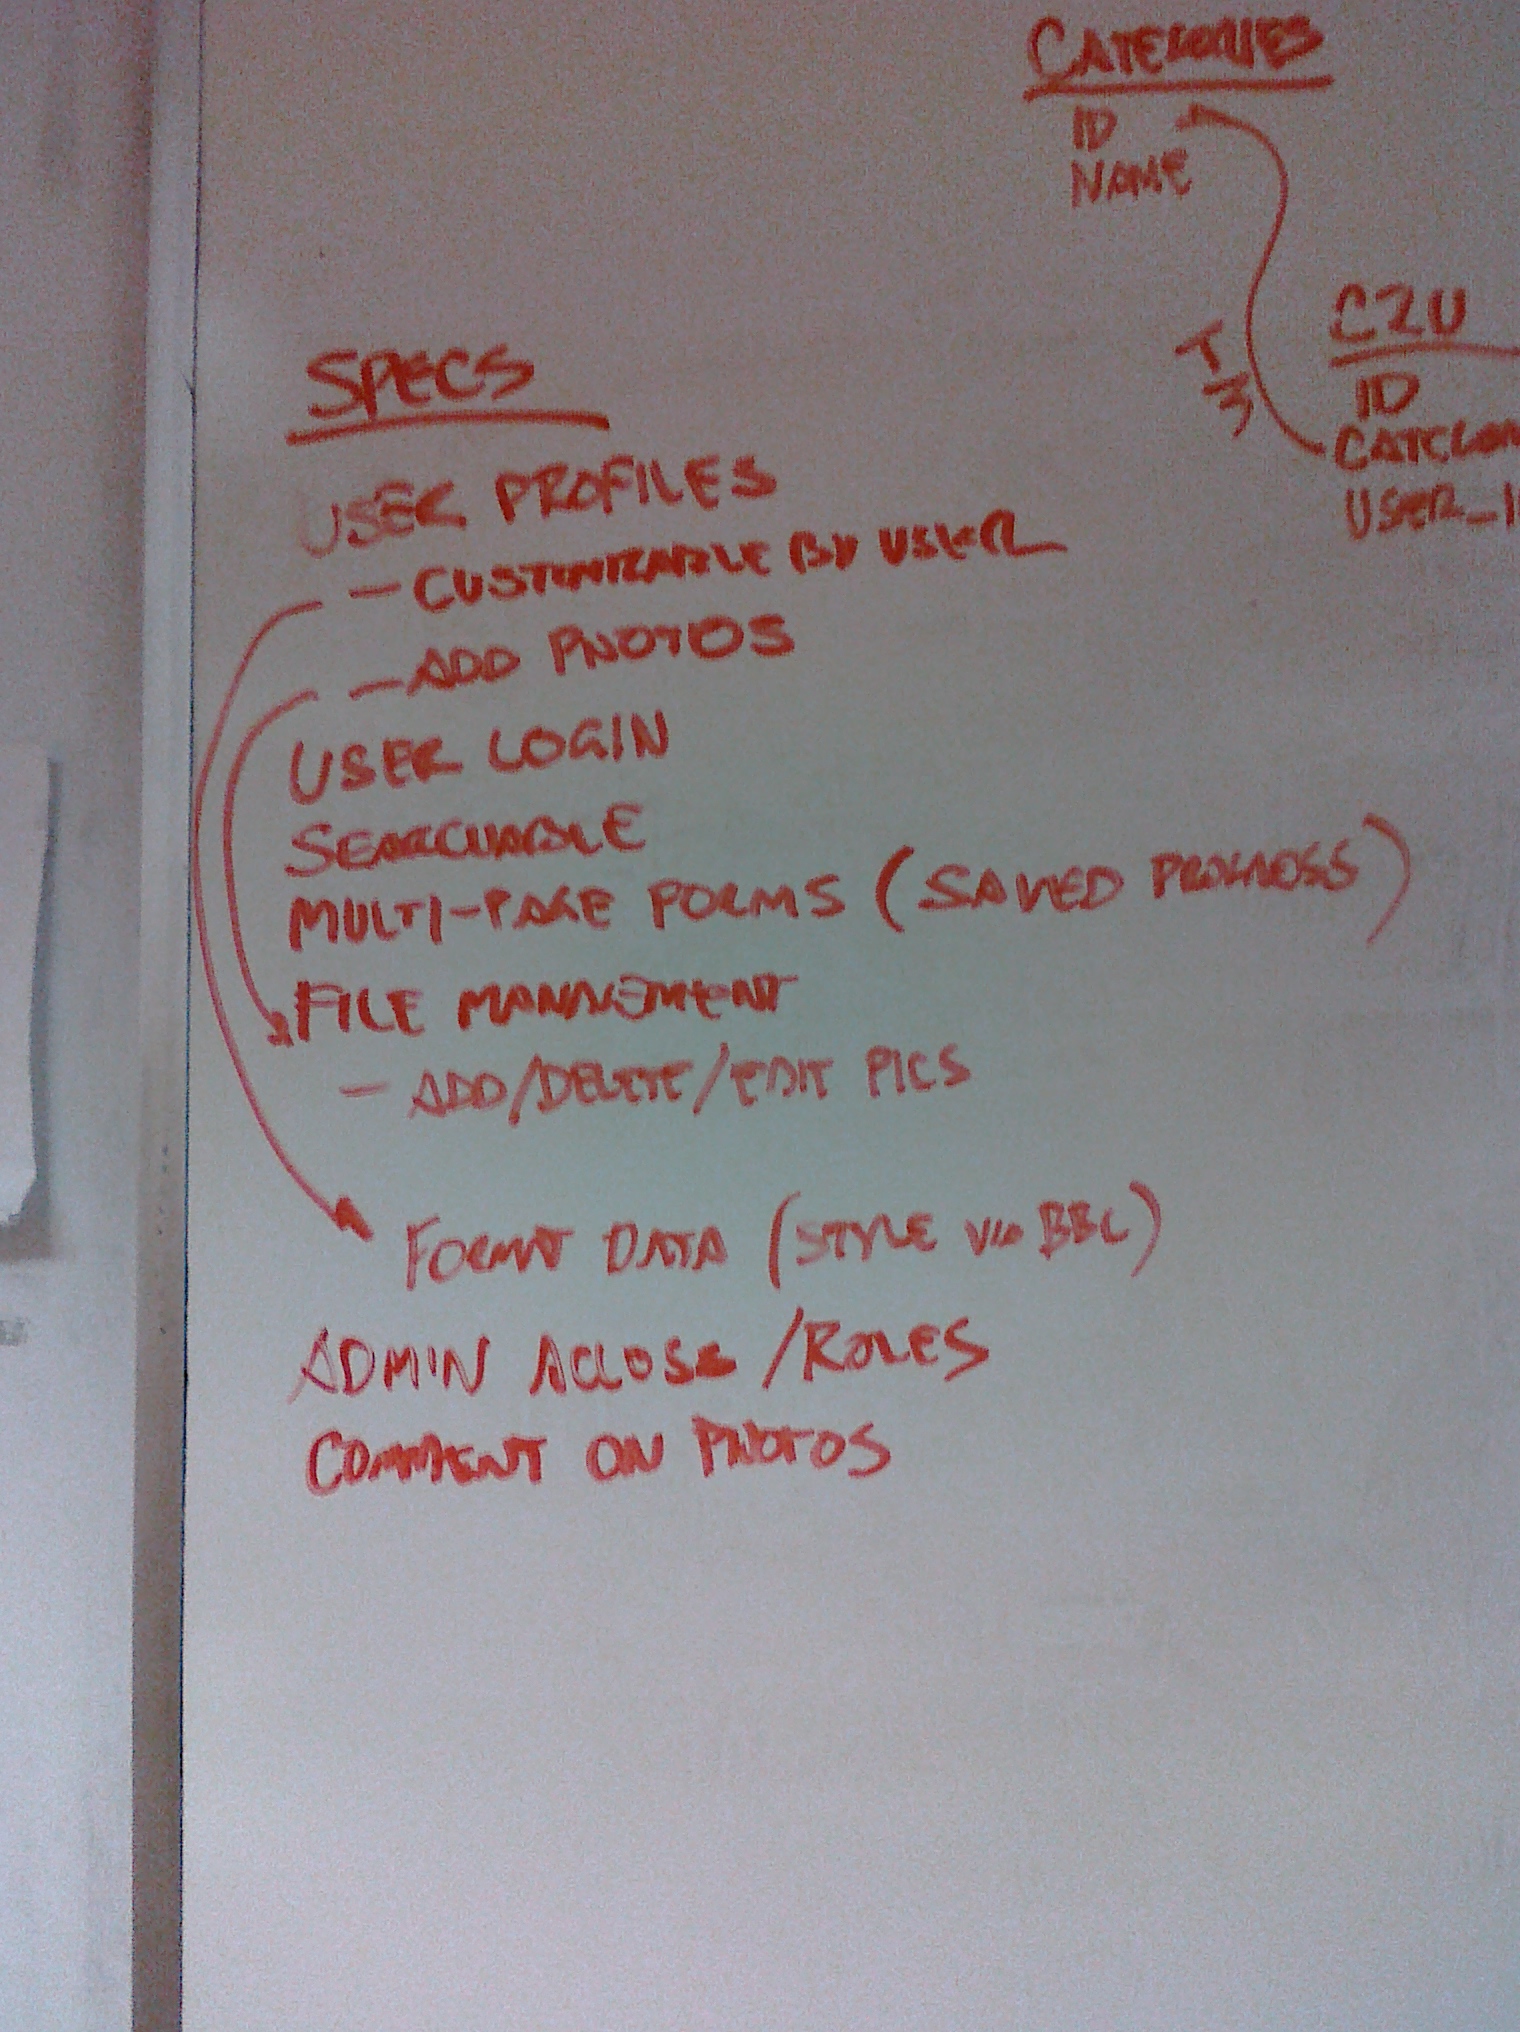 CATEGORIES
ID
NAME
C2U
ID
CATEGOR
USER_I
SPECS
USER PROFILES
- CUSTOMIZABLE BY USER
- ADD PHOTOS
USER LOGIN
SEARCHABLE
MULTI-PAGE FORMS (SAVED PROGRESS)
FILE MANAGEMENT
- ADD/DELETE/EDIT PICS
FORMAT DATA (STYLE VIA BBC)
ADMIN ACCESS/ROLES
COMMENT ON PHOTOS